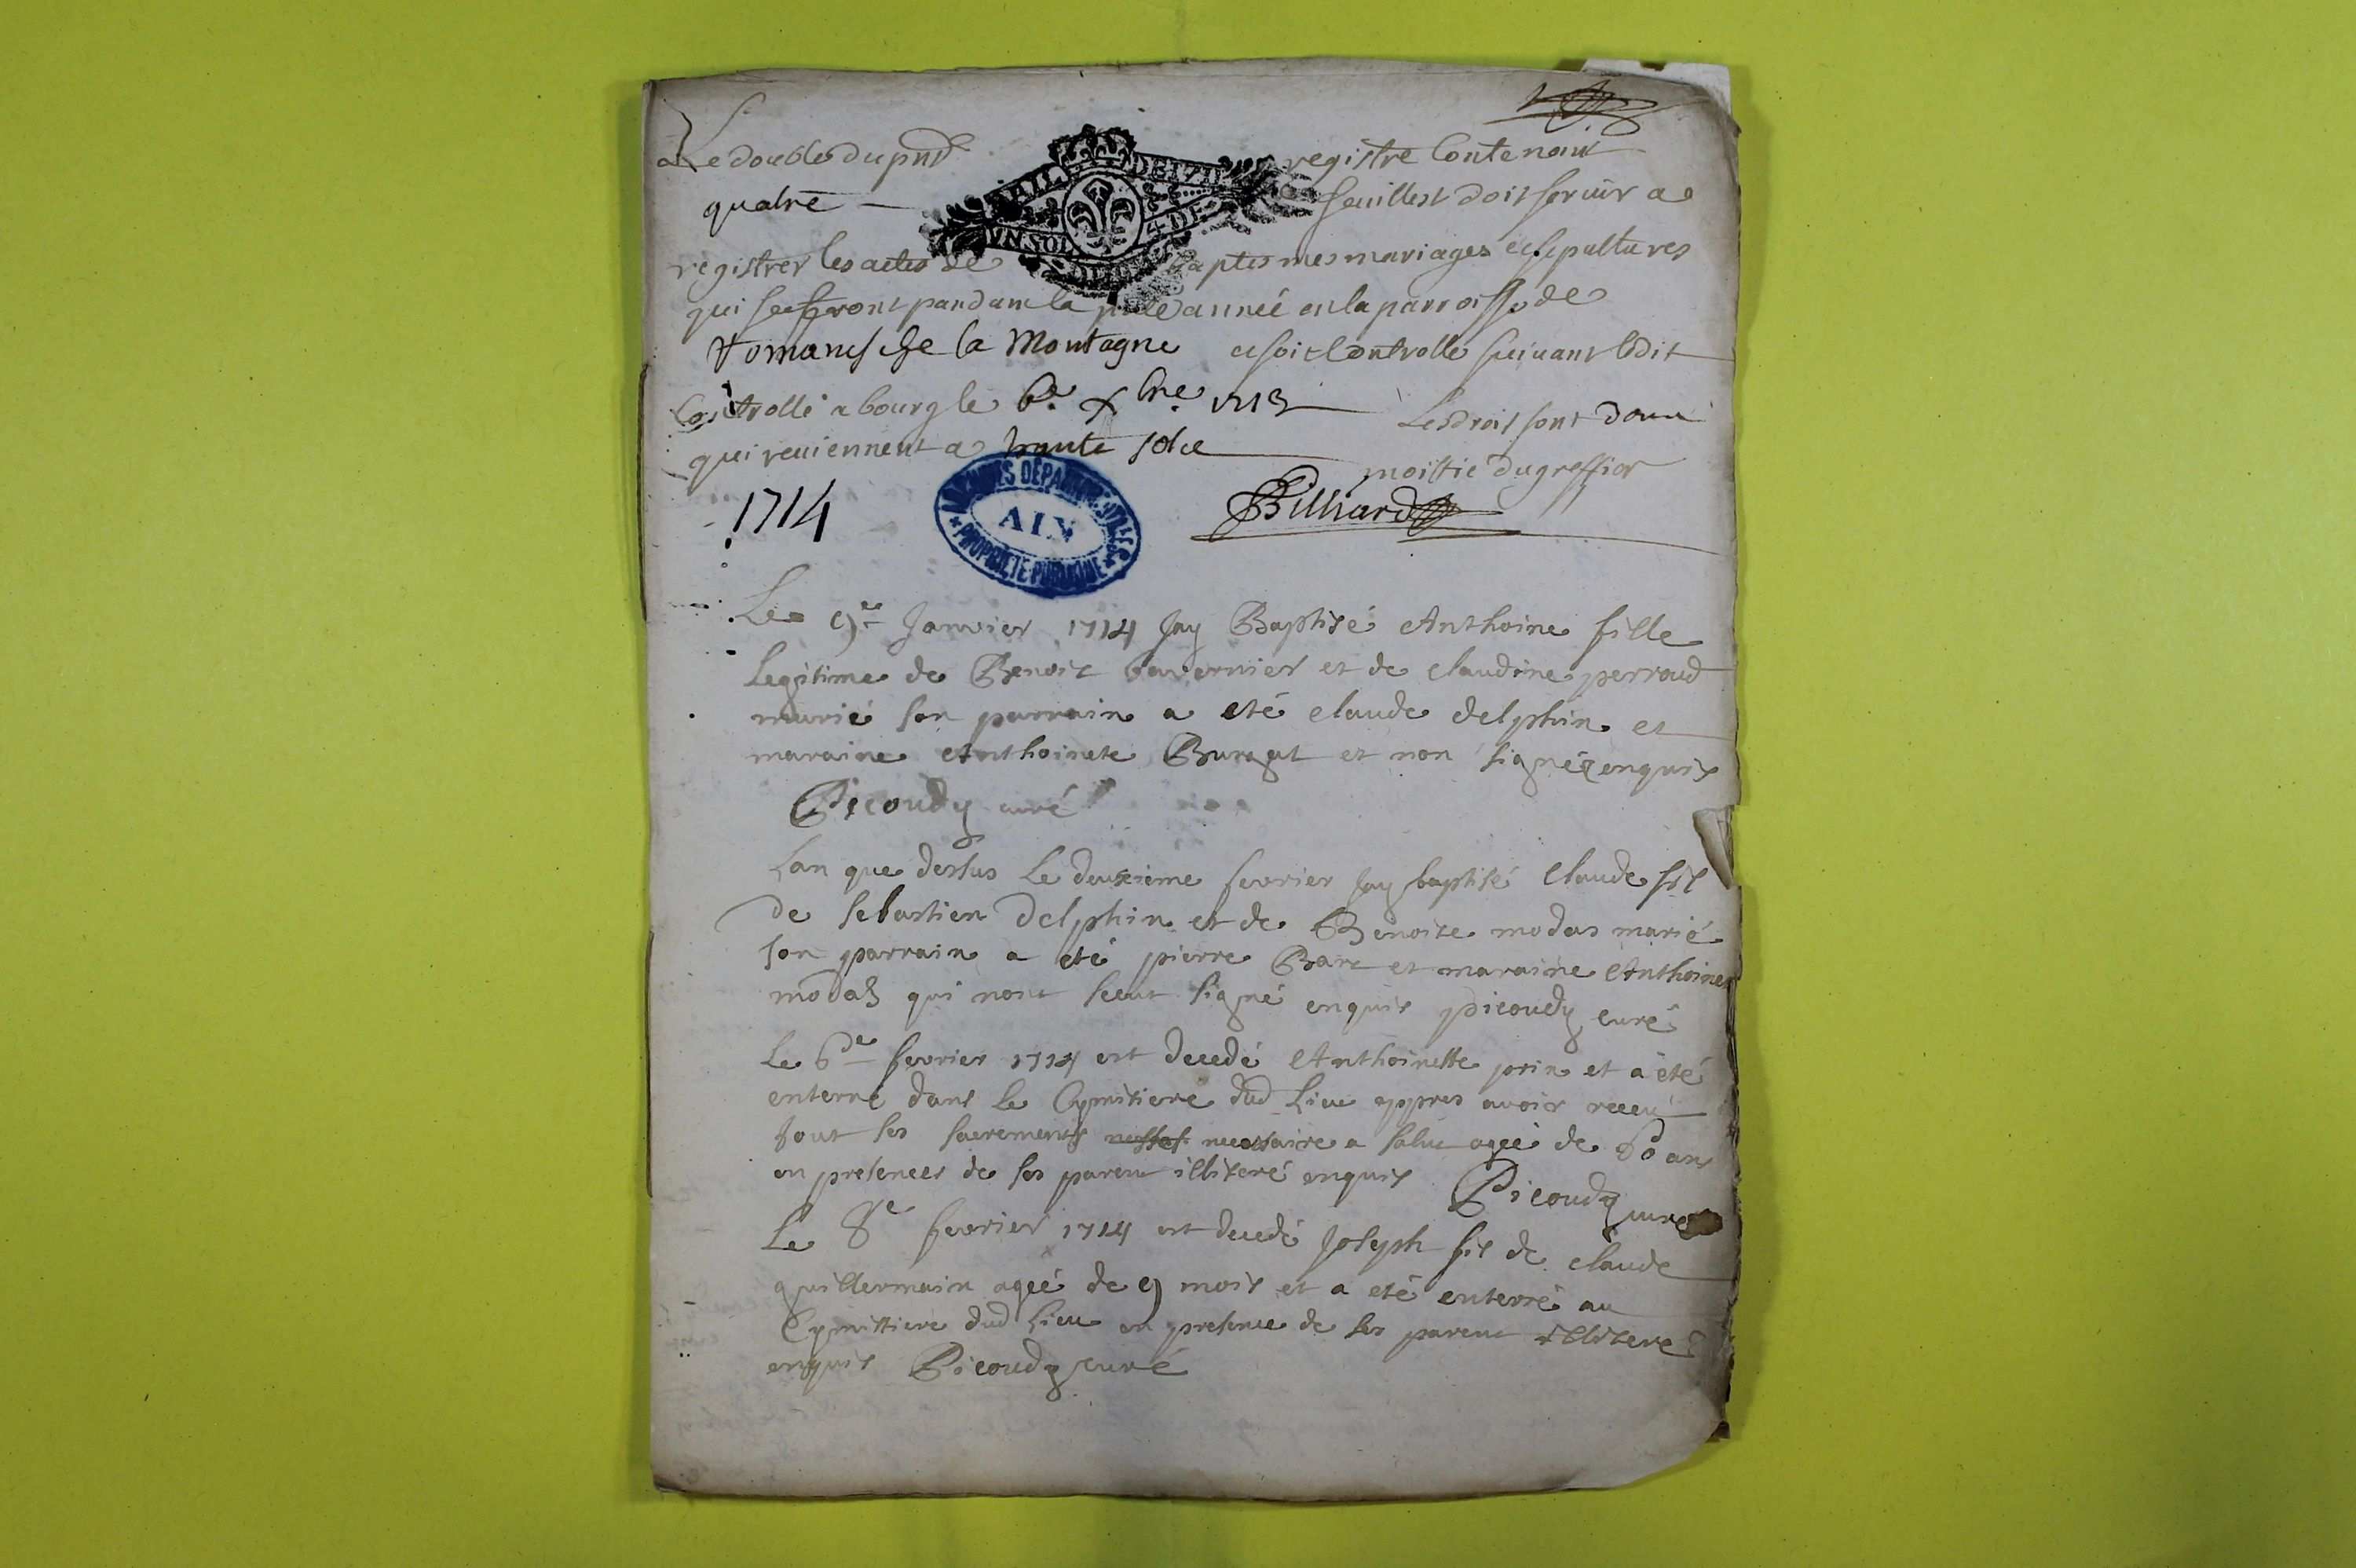 Le double du pnt registre Contenant
quatre feuillest doit servir a
registrer les actes de baptesmes mariages et sepultures
qui se feront pandant la pnte année en la parroisse de
Romanesche la Montagne et soit Controlle suivant ledit
Controllé a bourg le 6e xbre 1713 Les droit sont
qui reviennent a trante sols moittie du greffier
1714
Billiard
GEN. DE
VN SOL 4 DE
ARCHIVES DÉPARTEMENTALES
AIN
PROPRIÉTÉ PUBLIQUE
Le 9e Janvier 1714 Jay Baptisé Anthoine fille
Legitime de Benoit tavernier et de claudine perraud
marié son parrain a eté claude delphin et
maraine Anthoinete Buregat et non signéz enquis
Picoudy curé
Lan que dessus Le deuxieme fevrier Jay baptisé Claude fils
de sebastien Delphin et de Benoite modas marié
son parrain a eté pierre Bare et maraine Anthoine
modas qui nont sceut signé enquis picoudy curé
Le 6e fevrier 1714 est decedé Anthoinette prin et a été
enterré dans le Cymitiere dud Lieu appres avoir receu
tout ses sacrements necessaire a salut agée de 60 ans
en presences de ses parent illiteré enquis Picoudy curé
Le 8e fevrier 1714 est decedé Joseph fils de claude
guillermain agée de 9 mois et a eté enterré au
Cymittiere dud Lieu en presence de ses parent illiteré
enquis Picoudy curé